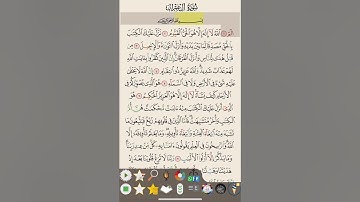 سُورَةُ آلِ عِمْرَانَ
بِسْمِ ٱللَّهِ ٱلرَّحْمَٰنِ ٱلرَّحِيمِ
الٓمٓ ۝ ٱللَّهُ لَآ إِلَٰهَ إِلَّا هُوَ ٱلْحَىُّ ٱلْقَيُّومُ ۝ نَزَّلَ عَلَيْكَ ٱلْكِتَٰبَ
بِٱلْحَقِّ مُصَدِّقًا لِّمَا بَيْنَ يَدَيْهِ وَأَنزَلَ ٱلتَّوْرَىٰةَ وَٱلْإِنجِيلَ ۝ مِن
قَبْلُ هُدًى لِّلنَّاسِ وَأَنزَلَ ٱلْفُرْقَانَ إِنَّ ٱلَّذِينَ كَفَرُوا۟ بِـَٔايَٰتِ ٱللَّهِ
لَهُمْ عَذَابٌ شَدِيدٌ وَٱللَّهُ عَزِيزٌ ذُو ٱنتِقَامٍ ۝ إِنَّ ٱللَّهَ لَا يَخْفَىٰ عَلَيْهِ
شَىْءٌ فِى ٱلْأَرْضِ وَلَا فِى ٱلسَّمَآءِ ۝ هُوَ ٱلَّذِى يُصَوِّرُكُمْ فِى
ٱلْأَرْحَامِ كَيْفَ يَشَآءُ لَآ إِلَٰهَ إِلَّا هُوَ ٱلْعَزِيزُ ٱلْحَكِيمُ ۝ هُوَ ٱلَّذِىٓ
أَنزَلَ عَلَيْكَ ٱلْكِتَٰبَ مِنْهُ ءَايَٰتٌ مُّحْكَمَٰتٌ هُنَّ أُمُّ
ٱلْكِتَٰبِ وَأُخَرُ مُتَشَٰبِهَٰتٌ فَأَمَّا ٱلَّذِينَ فِى قُلُوبِهِمْ زَيْغٌ فَيَتَّبِعُونَ مَا
تَشَٰبَهَ مِنْهُ ٱبْتِغَآءَ ٱلْفِتْنَةِ وَٱبْتِغَآءَ تَأْوِيلِهِۦ وَمَا يَعْلَمُ تَأْوِيلَهُۥٓ إِلَّا
ٱللَّهُ وَٱلرَّٰسِخُونَ فِى ٱلْعِلْمِ يَقُولُونَ ءَامَنَّا بِهِۦ كُلٌّ مِّنْ عِندِ رَبِّنَا
وَمَا يَذَّكَّرُ إِلَّآ أُو۟لُوا۟ ٱلْأَلْبَٰبِ ۝ رَبَّنَا لَا تُزِغْ قُلُوبَنَا بَعْدَ إِذْ
هَدَيْتَنَا وَهَبْ لَنَا
OFF